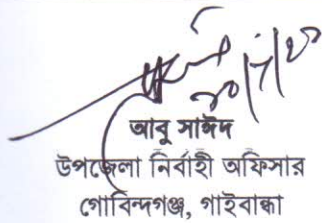 আবু সাঈদ
উপজেলা নির্বাহী অফিসার
গোবিন্দগঞ্জ, গাইবান্ধা